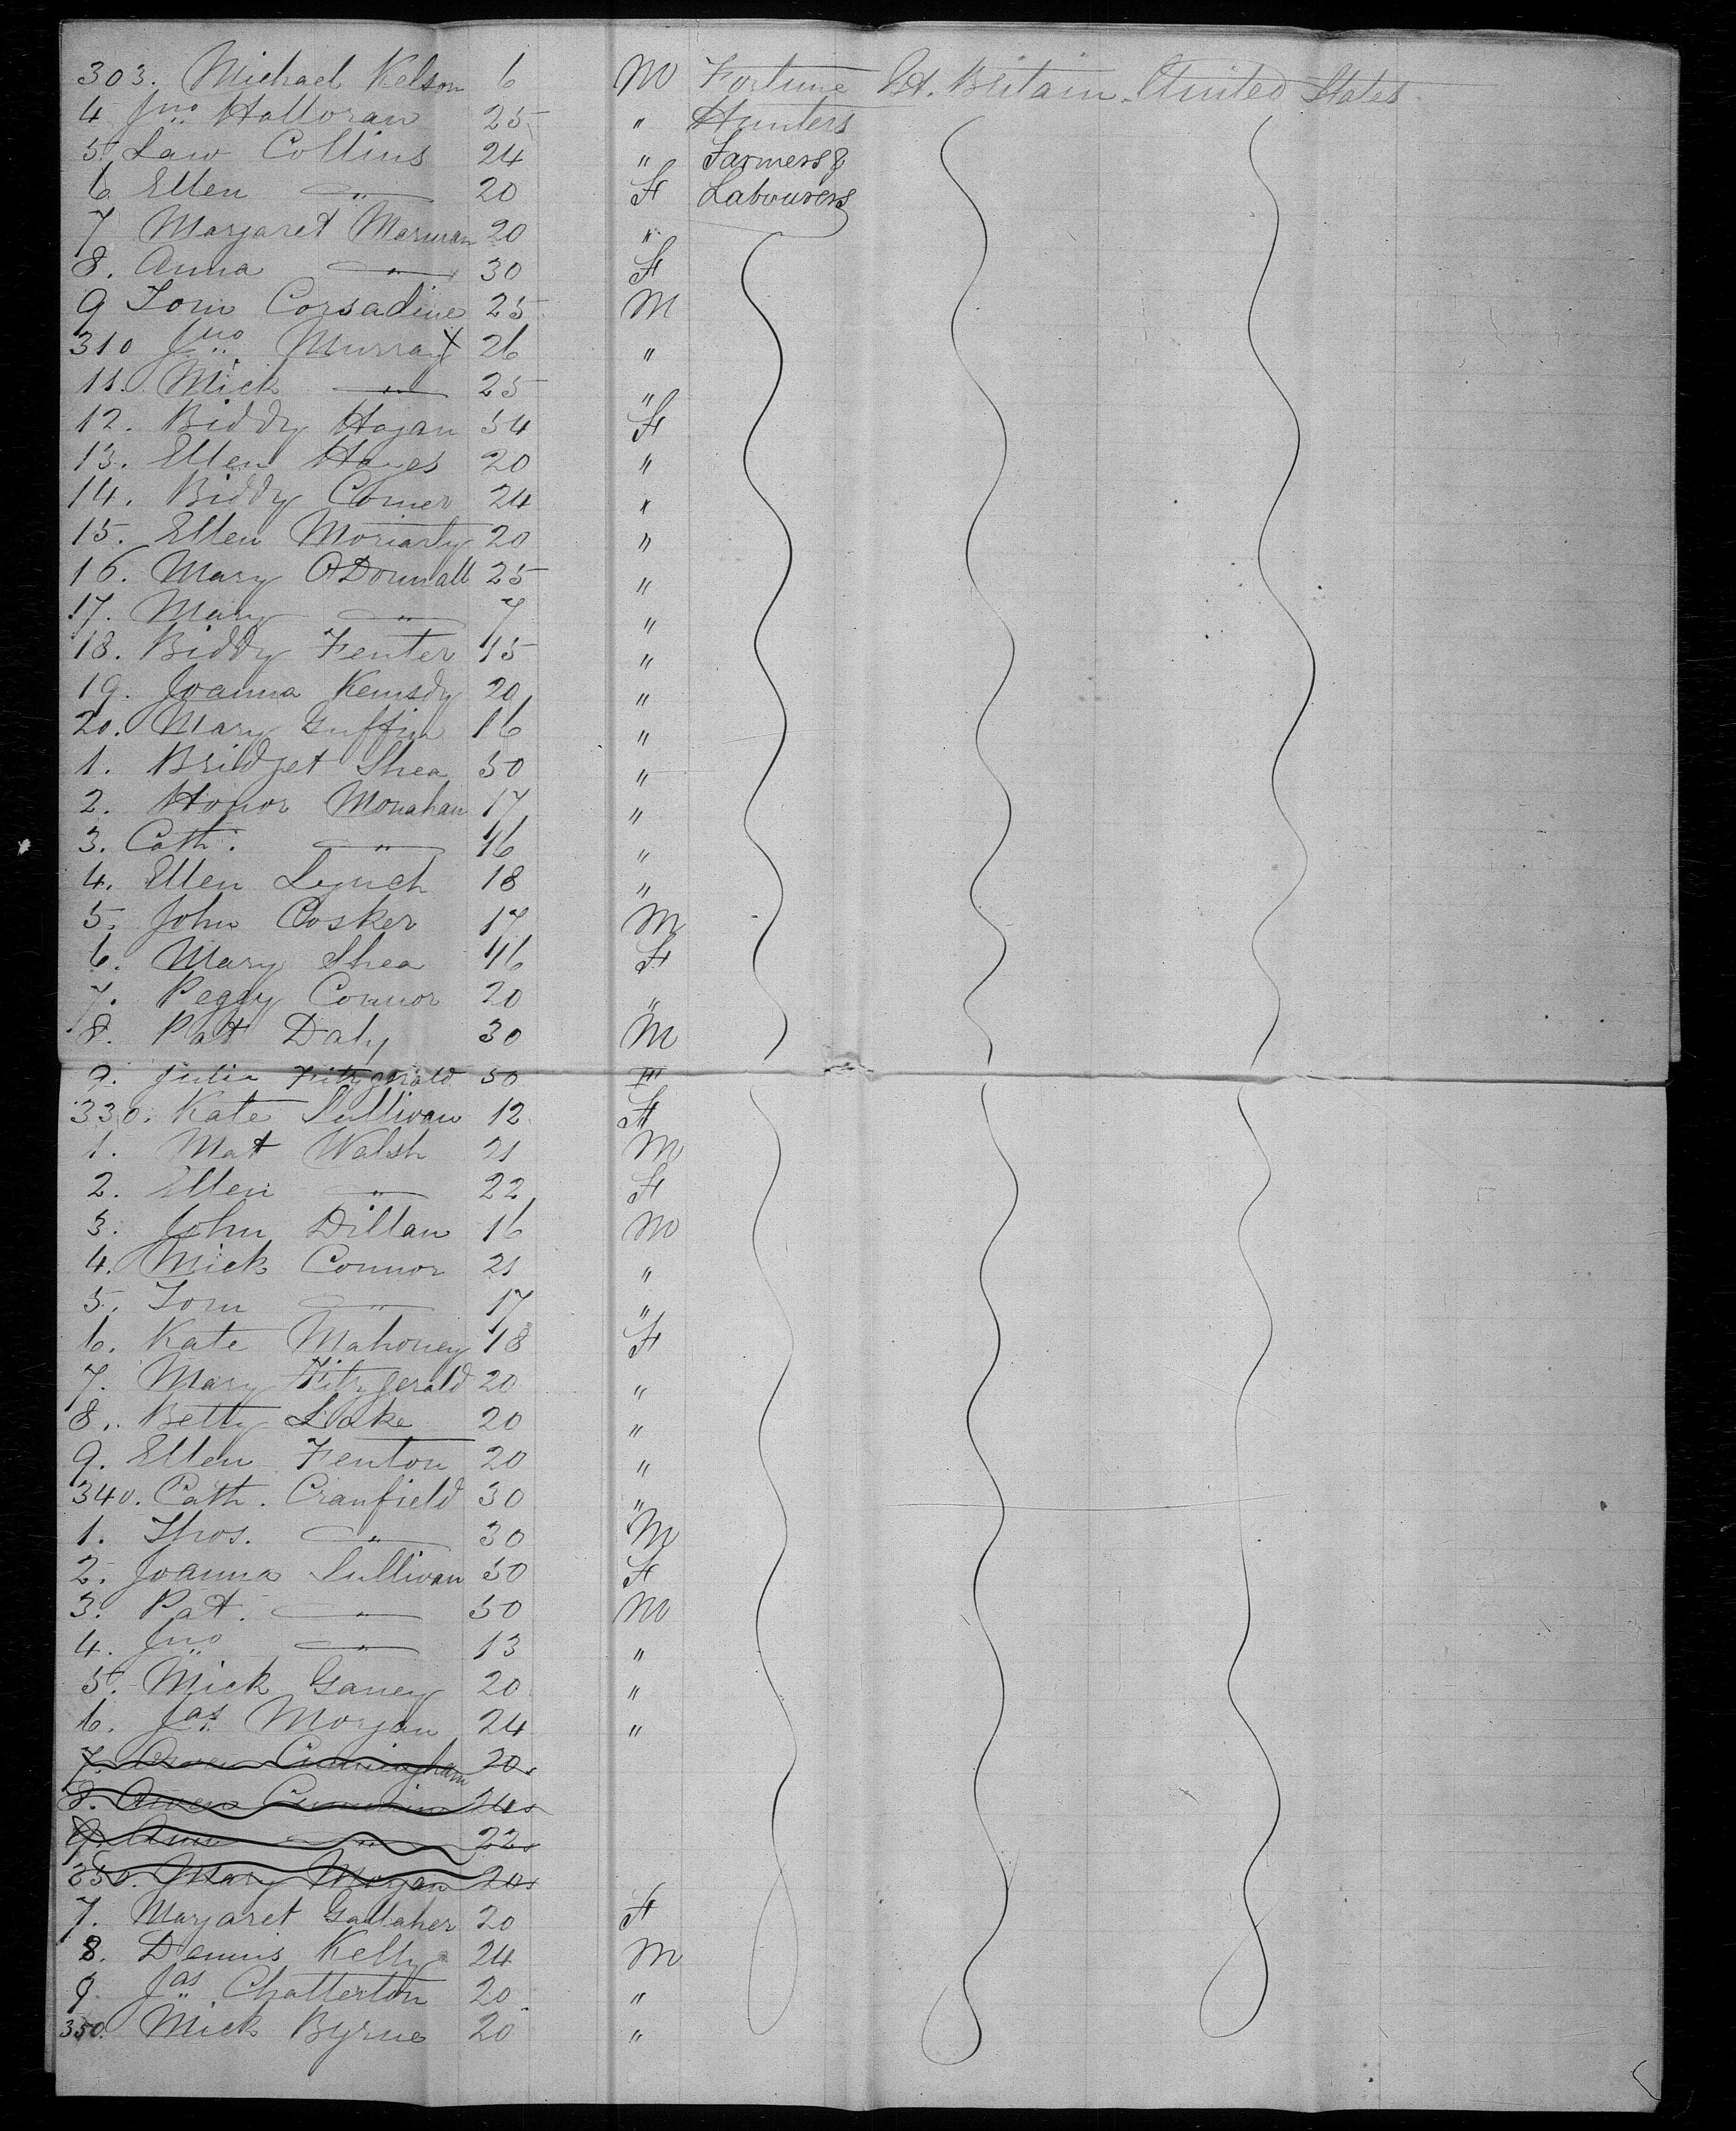 303. Michael Kelson 6 M Fortune Gt. Britain United States
4 Jno Halloran 25 " Hunters
5. Law Collins 24 " Farmers &
6 Ellen " 20 F Labourers
7 Margaret Marman 20 "
8. Anna " 30 F
9 Tom Corsadine 25 M
310 Jno Murray 26 "
11. Mick " 25 "
12. Biddy Hogan 54 F
13. Ellen Hayes 20 "
14. Biddy Comer 24 "
15. Ellen Moriarty 20 "
16. Mary ODonnall 25 "
17. Mary " 7 "
18. Biddy Fenter 15 "
19. Joanna Kemsdy 20 "
20. Mary Guffin 16 "
1. Bridget Shea 50 "
2. Honor Monahan 17 "
3. Cath. " 16 "
4. Ellen Lynch 18 "
5. John Cosker 17 M
6. Mary Shea 46 F
7. Peggy Connor 20 "
8. Pat Daly 30 M
9. Julia Fitzgerald 50 F
330. Kate Sullivan 12 F
1. Mat Walsh 21 M
2. Ellen " 22 F
3. John Dillan 16 M
4. Mick Connor 21 "
5. Tom " 17 "
6. Kate Mahoney 18 F
7. Mary Fitzgerald 20 "
8. Betty Lake 20 "
9. Ellen Fenton 20 "
340. Cath. Cranfield 30 "
1. Thos. " 30 M
2. Joanna Sullivan 50 F
3. Pat. " 50 M
4. Jno " 13 "
5. Mick Ganey 20 "
6. Jas Morgan 24 "
7. Cunningham 20
8. Owen 24
9. Ann " 22
250. Mary Morgan 20
7. Margaret Gallaher 20 F
8. Dennis Kelly 24 M
9. Jas Chatterton 20 "
350. Mick Byrne 20 "